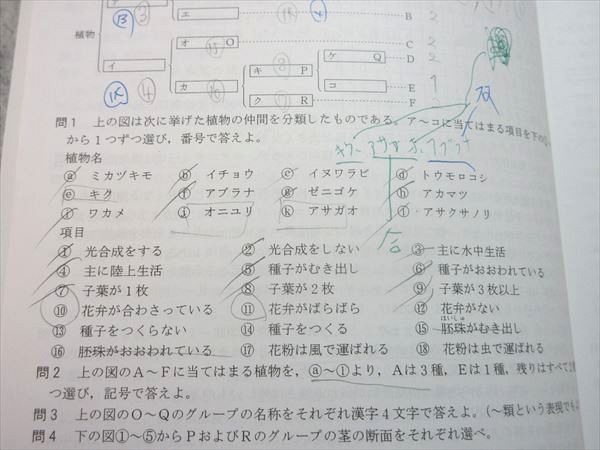 植物
エ
B 2
③
⑬
オ
O
⑮
C 2
ケ
Q
D 2
イ
⑭
④
カ
⑯
キ
P
⑧
コ
E 1
ク
R
⑨
F
双
問1 上の図は次に挙げた植物の仲間を分類したものである。ア～コに当てはまる項目を下の
から1つずつ選び，番号で答えよ。
キク アサガオ アブラナ
植物名
ⓐ ミカヅキモ ⓑ イチョウ ⓒ イヌワラビ ⓓ トウモロコシ
ⓔ キク ⓕ アブラナ ⓖ ゼニゴケ ⓗ アカマツ
ⓘ ワカメ ⓙ オニユリ ⓚ アサガオ ⓛ アサクサノリ
合
項目
① 光合成をする ② 光合成をしない ③ 主に水中生活
④ 主に陸上生活 ⑤ 種子がむき出し ⑥ 種子がおおわれている
⑦ 子葉が1枚 ⑧ 子葉が2枚 ⑨ 子葉が3枚以上
⑩ 花弁が合わさっている ⑪ 花弁がばらばら ⑫ 花弁がない
はいしゅ
⑬ 種子をつくらない ⑭ 種子をつくる ⑮ 胚珠がむき出し
⑯ 胚珠がおおわれている ⑰ 花粉は風で運ばれる ⑱ 花粉は虫で運ばれる
問2 上の図のA～Fに当てはまる植物を，ⓐ～ⓛより，Aは3種，Eは1種，残りはすべて2
つ選び，記号で答えよ。
問3 上の図のO～Qのグループの名称をそれぞれ漢字4文字で答えよ。(～類という表現でも
問4 下の図①～⑤からPおよびRのグループの茎の断面をそれぞれ選べ。